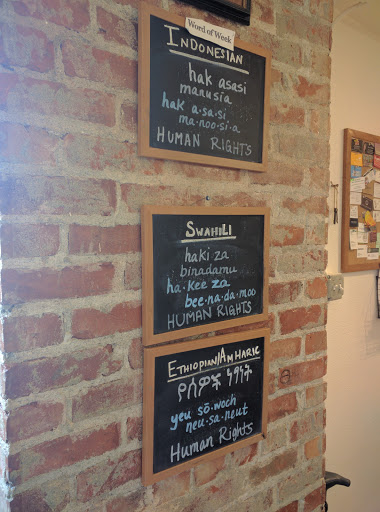 Word of Week
INDONESIAN
hak asasi
manusia
hak a·sa·si
ma·noo·si·a
HUMAN RIGHTS
SWAHILI
haki za
binadamu
ha·kee za
bee·na·da·moo
HUMAN RIGHTS
ETHIOPIAN/AMHARIC
የሰዎች ነፃነት
yeu sō·woch
neu·sa·neut
Human Rights